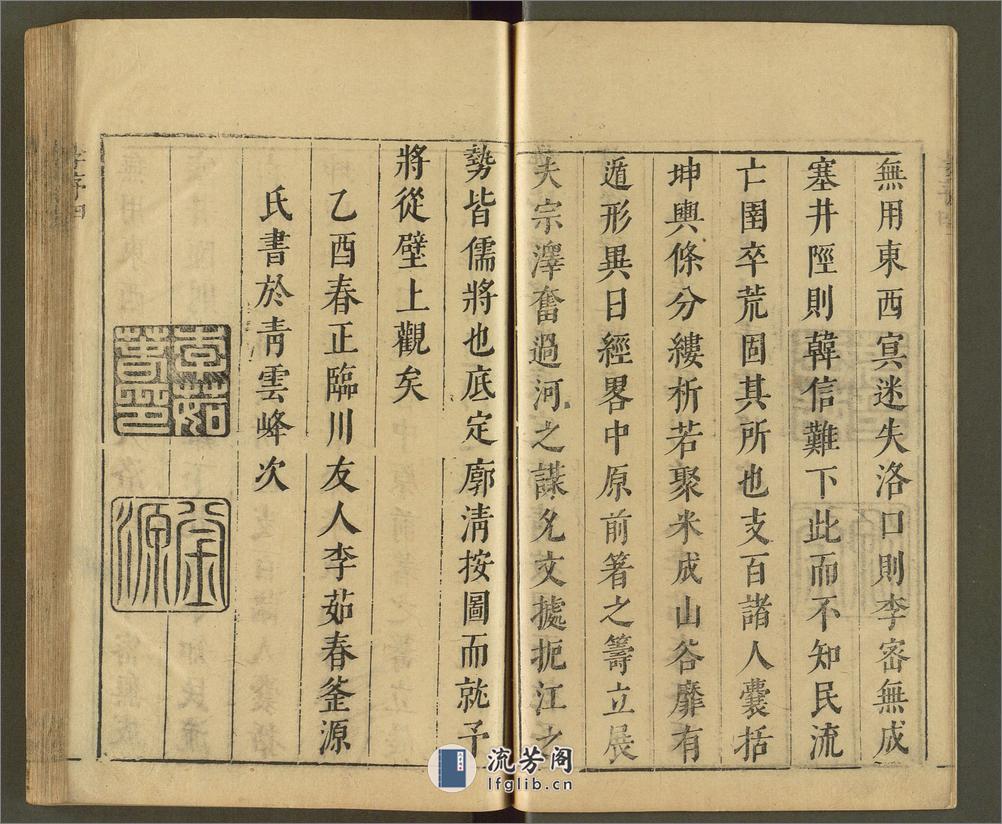 無用東西冥迷失洛口則李密無成
塞井陘則韓信難下此而不知民流
亡圉卒荒固其所也支百諸人囊括
坤輿條分縷析若聚米成山谷靡有
遁形異日經畧中原前箸之籌立展
夫宗澤奮過河之謀允文據扼江之
勢皆儒將也底定廓清按圖而就予
將從壁上觀矣
乙酉春正臨川友人李茹春釜源
氏書於青雲峰次
李茹
春印
釜
源
李序四
流芳阁
lfglib.cn